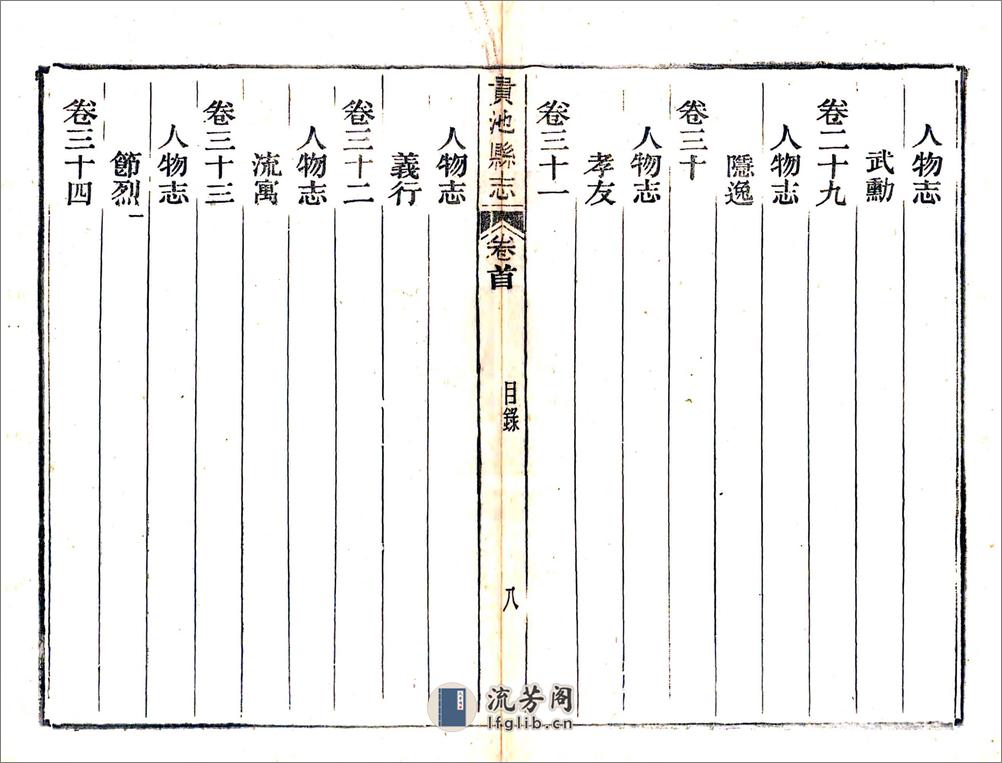 人物志
武勳
卷二十九
人物志
隱逸
卷三十
人物志
孝友
卷三十一
貴池縣志
卷首
目錄
八
人物志
義行
卷三十二
人物志
流寓
卷三十三
人物志
節烈一
卷三十四
流芳阁
lfglib.cn